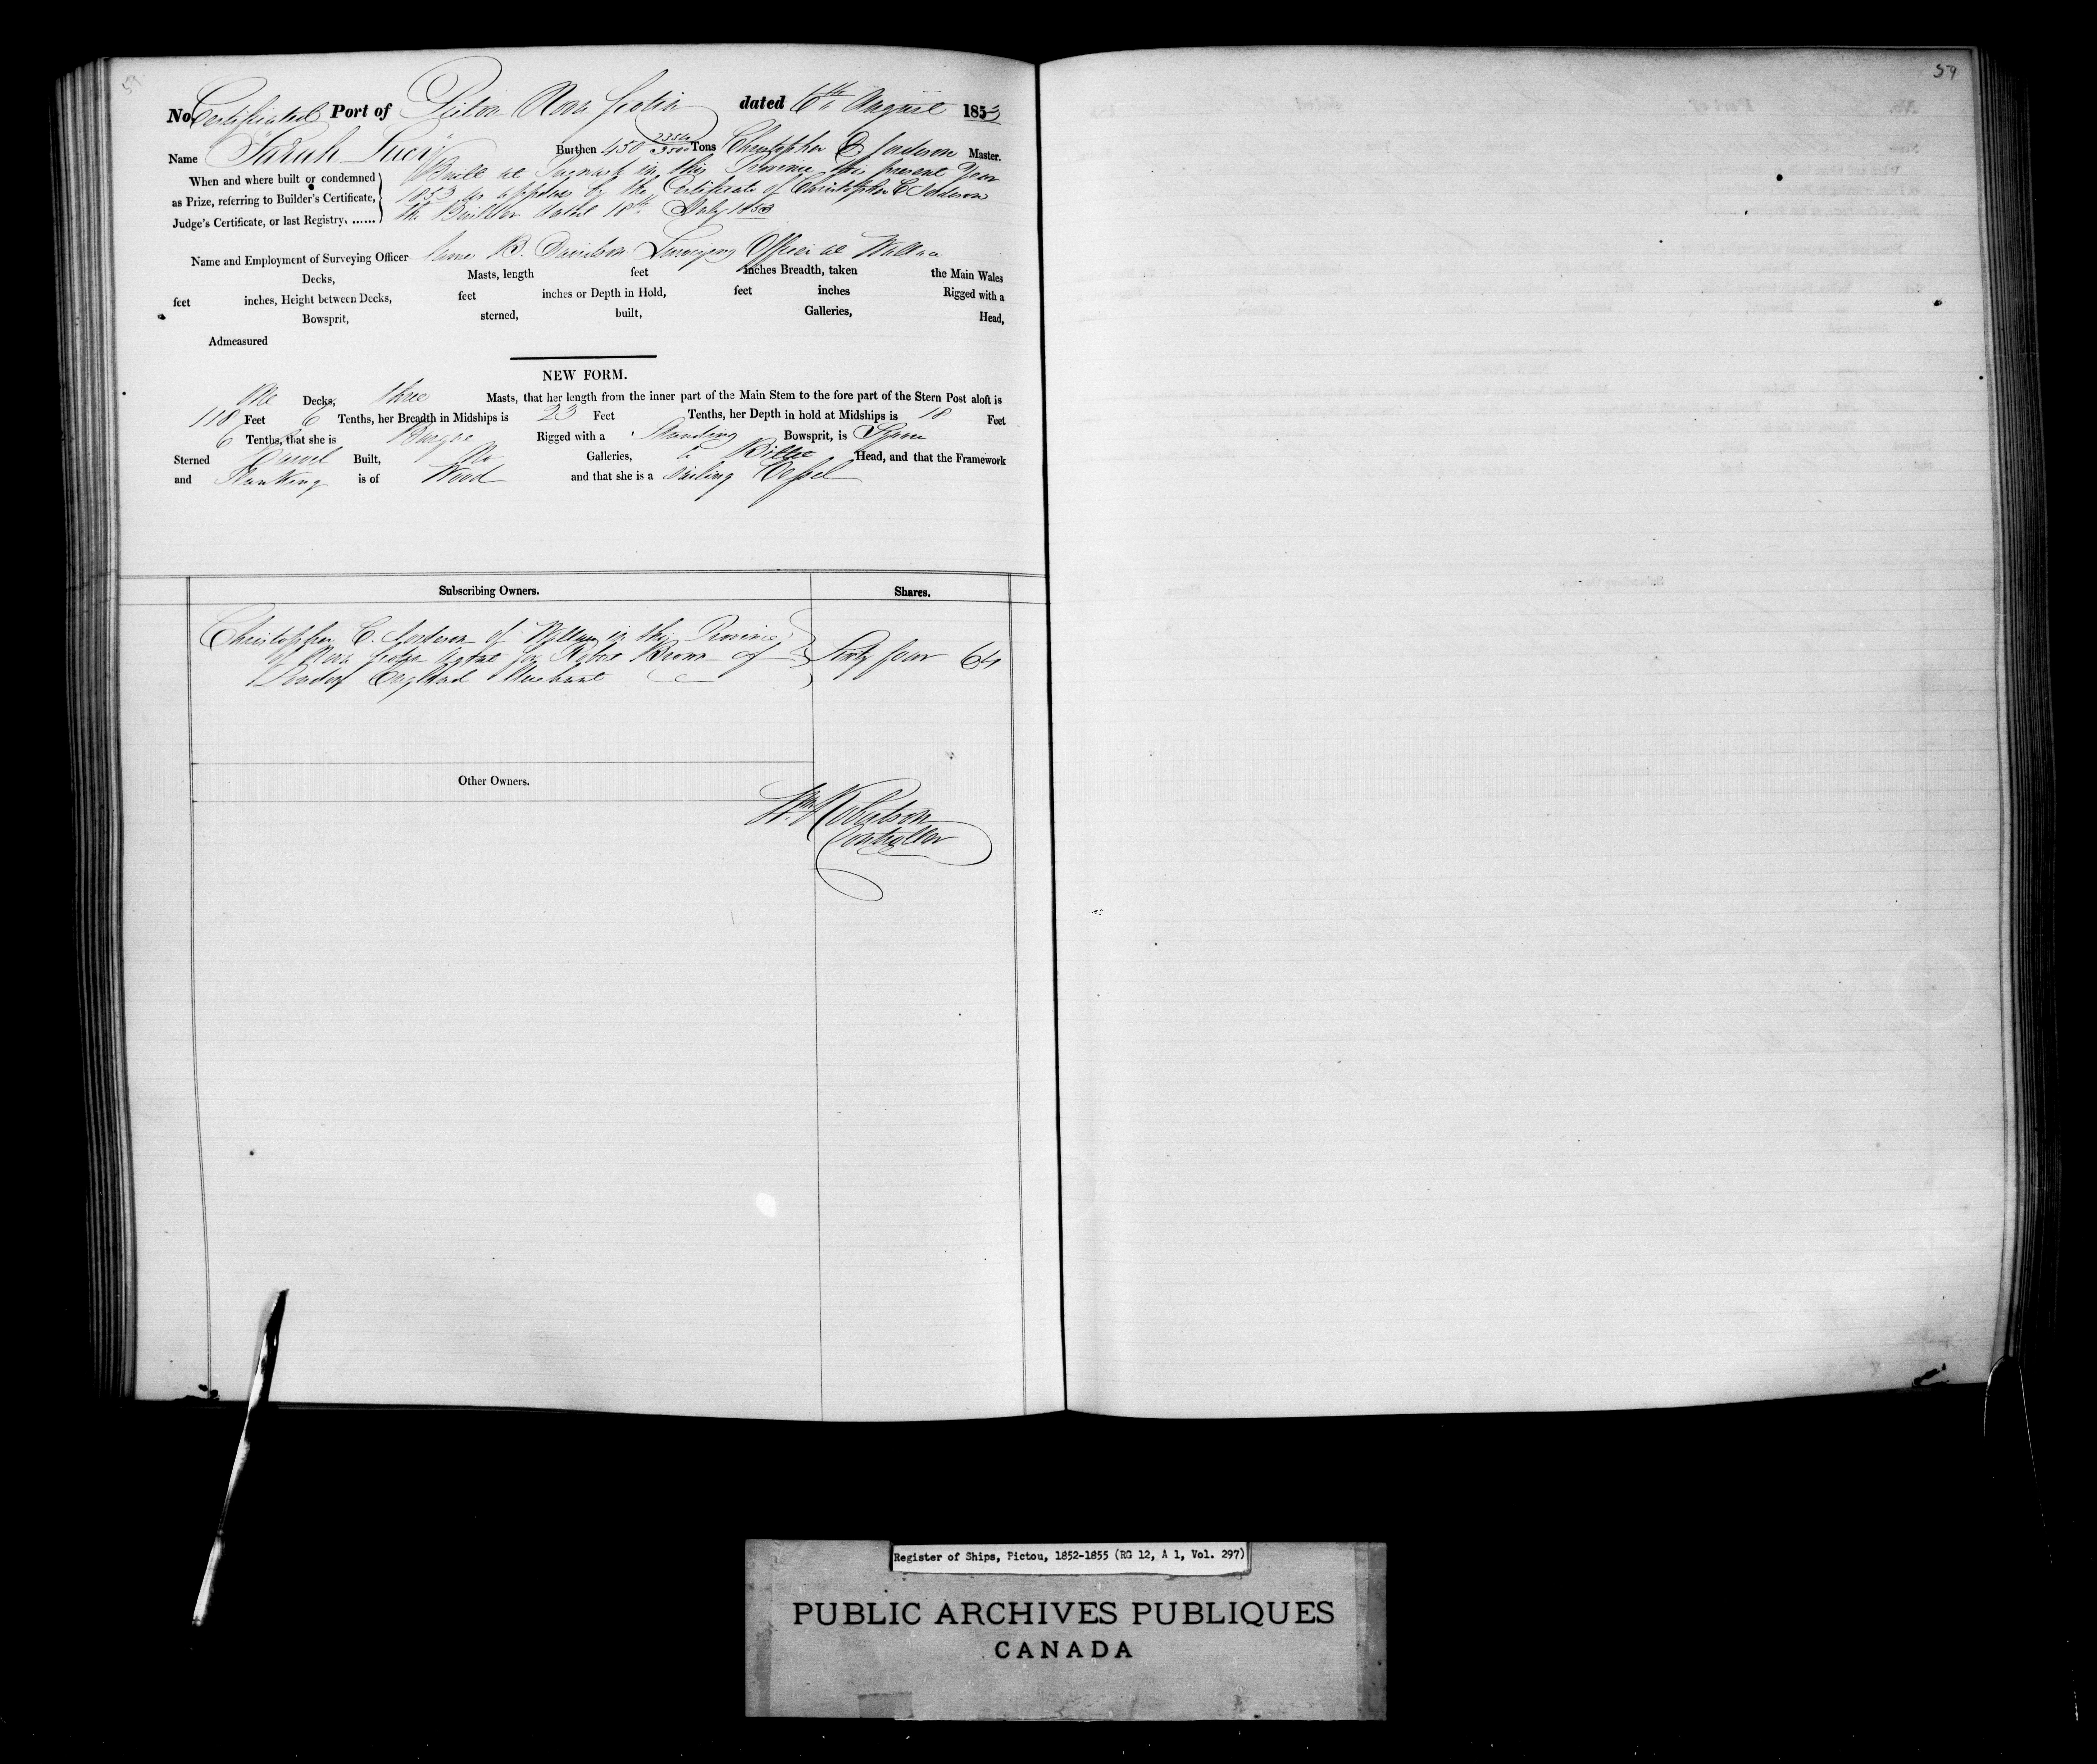 59
No. Certificated Port of Pictou Nova Scotia dated 6th August 1853
Name "Sarah Lucy" Burthen 450 Tons Christopher C. Master.
When and where built or condemned
as Prize, referring to Builder's Certificate,
Judge's Certificate, or last Registry.
Built at Pugwash in this Province this present Year
1853 as appears by the Certificate of Christopher C.
the Builder dated 18th July 1853
Name and Employment of Surveying Officer James B. Davidson Surveying Officer at Wallace
Decks, Masts, length feet inches Breadth, taken the Main Wales
feet inches, Height between Decks, feet inches or Depth in Hold, feet inches Rigged with a
Bowsprit, sterned, built, Galleries, Head,
Admeasured
NEW FORM.
One Decks, three Masts, that her length from the inner part of the Main Stem to the fore part of the Stern Post aloft is
118 Feet 6 Tenths, her Breadth in Midships is 23 Feet Tenths, her Depth in hold at Midships is 18 Feet
6 Tenths, that she is Barque Rigged with a Standing Bowsprit, is Square
Sterned Carvel Built, No Galleries, a Billet Head, and that the Framework
and Planking is of Wood and that she is a Sailing Vessel
Subscribing Owners. Shares.
Christopher C. of in the Province
of Nova Scotia Agent for Robert Brown of
London England Merchant
Sixty four 64
Other Owners.
Wm Robertson
Controller
59
Register of Ships, Pictou, 1852-1855 (RG 12, A 1, Vol. 297)
PUBLIC ARCHIVES PUBLIQUES
CANADA